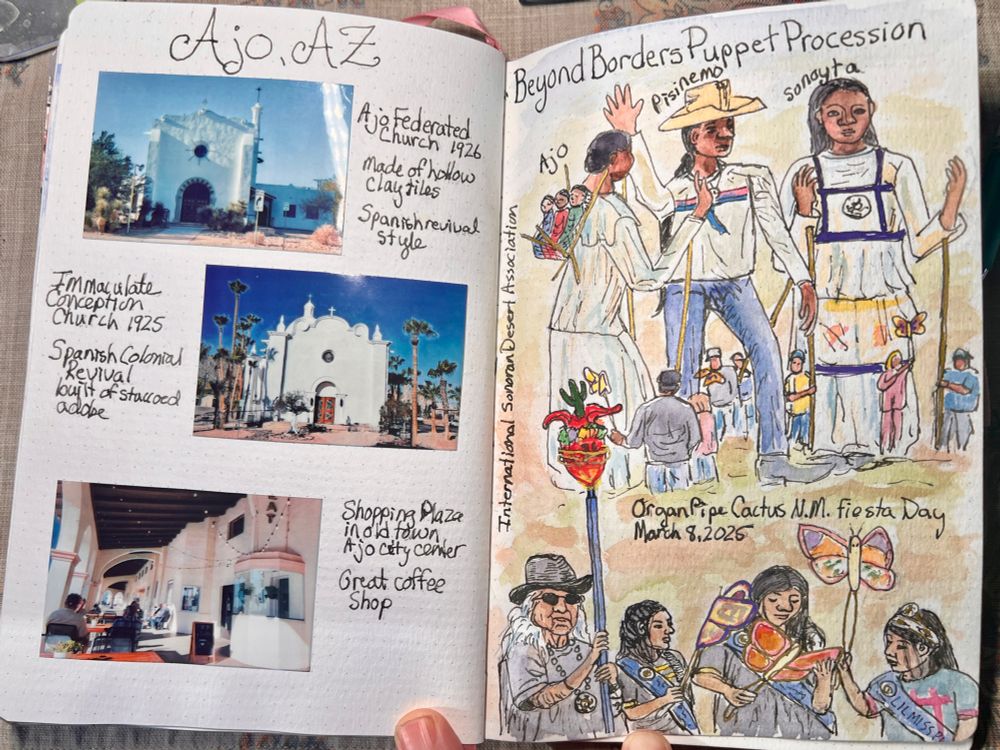 Ajo, AZ
Ajo Federated
Church 1926
Made of hollow
clay tiles
Spanish revival
style
Immaculate
Conception
Church 1925
Spanish Colonial
Revival
built of staccoed
adobe
Shopping Plaza
in old town
Ajo city center
Great coffee
Shop
Beyond Borders Puppet Procession
Ajo
Pisinemo
Sonoyta
International Sonoran Desert Association
Organ Pipe Cactus N.M. Fiesta Day
March 8, 2025
LIL MISS